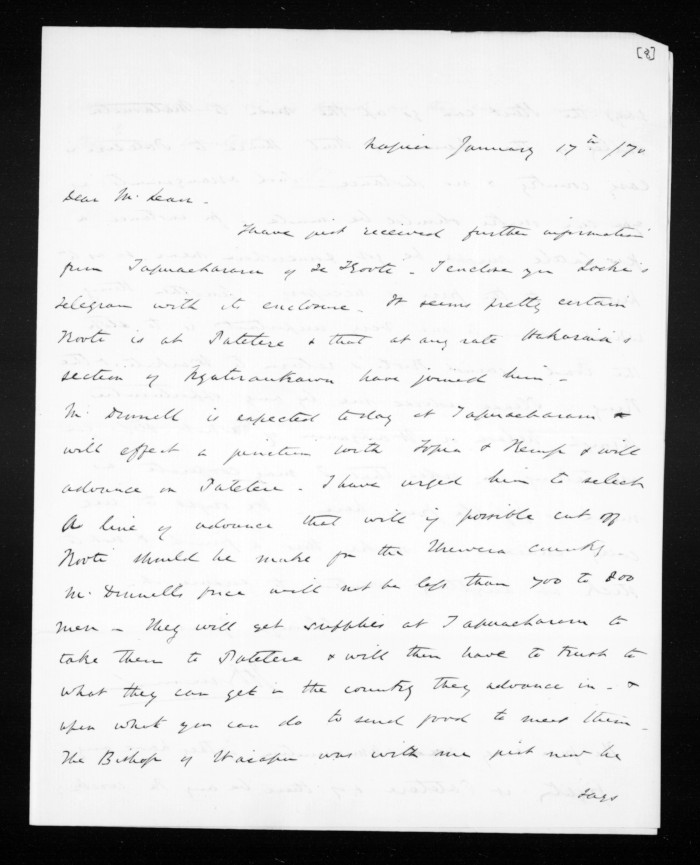 [2]
Napier January 17th /70
Dear McLean.
I have just received further information
from Tapuaeharuru of Te Kooti. I enclose you Locke's
Telegram with its enclosure. It seems pretty certain
Kooti is at Patetere & that at any rate Hakaraia's
section of have joined him -
McDonnell is expected today at Tapuaeharuru &
will effect a junction with Topia & Kemp & will
advance on Patetere - I have urged him to select
a line of advance that will if possible cut off
Kooti should he make for the Urewera country
McDonnells force will not be less than 700 to 800
men - They will get supplies at Tapuaeharuru to
take them to Patetere & will then have to trust to
what they can get in the country they advance in - &
upon what you can do to send food to meet them -
The Bishop of Waiapu was with me just now he
says